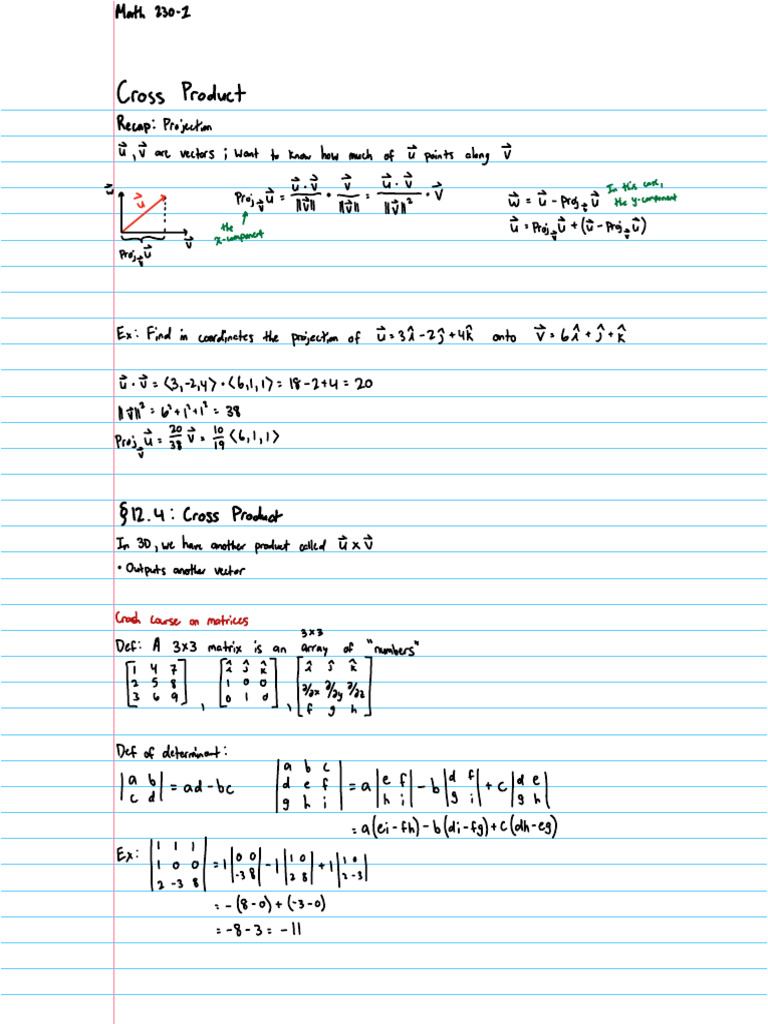 Math 230-1
Cross Product
Recap: Projection
u⃗, v⃗ are vectors ; want to know how much of u⃗ points along v⃗
u⃗
u⃗
v⃗
Proj_v⃗ u⃗
Proj_v⃗ u⃗ = (u⃗ · v⃗)/||v⃗|| · v⃗/||v⃗|| = (u⃗ · v⃗)/||v⃗||² · v⃗
the
x-component
w⃗ = u⃗ - Proj_v⃗ u⃗
In this case,
the y-component
u⃗ = Proj_v⃗ u⃗ + (u⃗ - Proj_v⃗ u⃗)
Ex: Find in coordinates the projection of u⃗ = 3î - 2ĵ + 4k̂ onto v⃗ = 6î + ĵ + k̂
u⃗ · v⃗ = ⟨3,-2,4⟩ · ⟨6,1,1⟩ = 18 - 2 + 4 = 20
||v⃗||² = 6² + 1² + 1² = 38
Proj_v⃗ u⃗ = 20/38 v⃗ = 10/19 ⟨6,1,1⟩
§12.4: Cross Product
In 3D, we have another product called u⃗ × v⃗
• Outputs another vector
Crash course on matrices
3×3
Def: A 3×3 matrix is an array of "numbers"
[1 4 7; 2 5 8; 3 6 9], [î ĵ k̂; 1 0 0; 0 1 0], [î ĵ k̂; ∂/∂x ∂/∂y ∂/∂z; f g h]
Def of determinant:
|a b; c d| = ad - bc
|a b c; d e f; g h i| = a|e f; h i| - b|d f; g i| + c|d e; g h|
= a(ei - fh) - b(di - fg) + c(dh - eg)
Ex: |1 1 1; 1 0 0; 2 -3 8| = 1|0 0; -3 8| - 1|1 0; 2 8| + 1|1 0; 2 -3|
= -(8-0) + (-3-0)
= -8 - 3 = -11